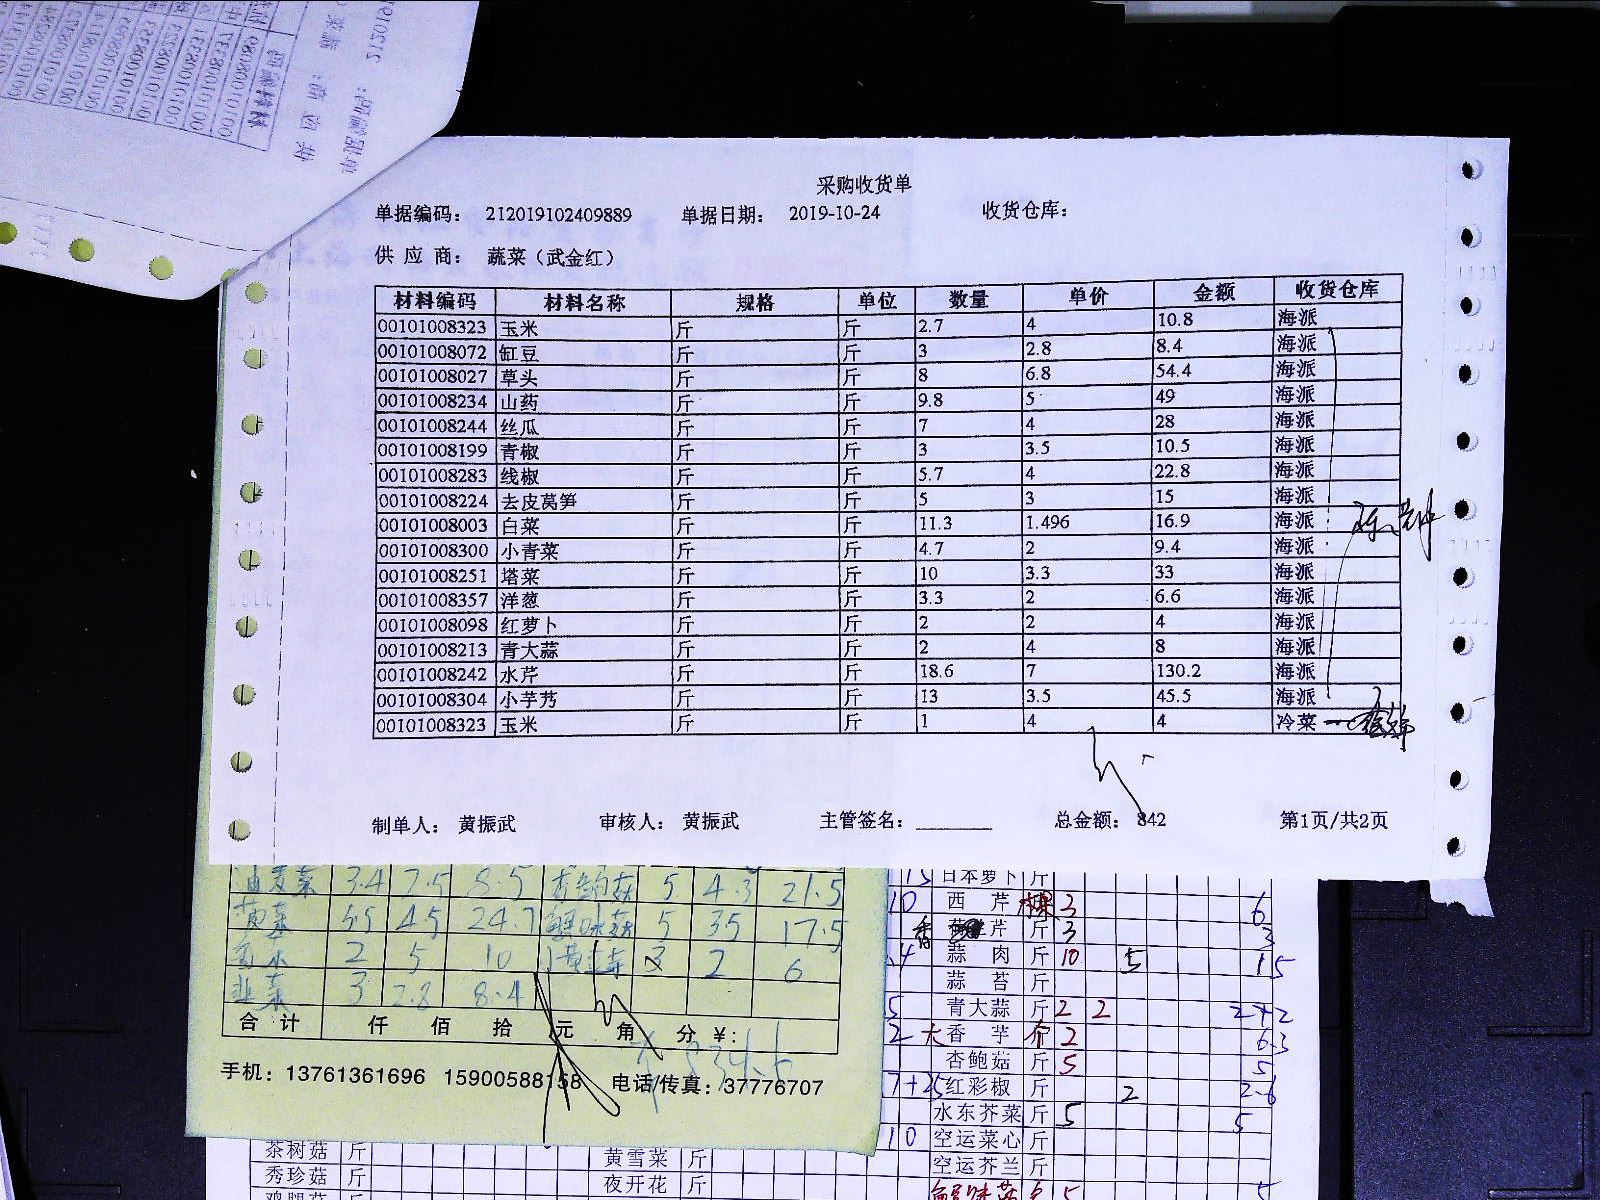 采购收货单
单据编码： 212019102409889 单据日期： 2019-10-24 收货仓库：
供 应 商： 蔬菜（武金红）
材料编码 材料名称 规格 单位 数量 单价 金额 收货仓库
00101008323 玉米 斤 斤 2.7 4 10.8 海派
00101008072 缸豆 斤 斤 3 2.8 8.4 海派
00101008027 草头 斤 斤 8 6.8 54.4 海派
00101008234 山药 斤 斤 9.8 5 49 海派
00101008244 丝瓜 斤 斤 7 4 28 海派
00101008199 青椒 斤 斤 3 3.5 10.5 海派
00101008283 线椒 斤 斤 5.7 4 22.8 海派
00101008224 去皮莴笋 斤 斤 5 3 15 海派
00101008003 白菜 斤 斤 11.3 1.496 16.9 海派
00101008300 小青菜 斤 斤 4.7 2 9.4 海派
00101008251 塔菜 斤 斤 10 3.3 33 海派
00101008357 洋葱 斤 斤 3.3 2 6.6 海派
00101008098 红萝卜 斤 斤 2 2 4 海派
00101008213 青大蒜 斤 斤 2 4 8 海派
00101008242 水芹 斤 斤 18.6 7 130.2 海派
00101008304 小芋艿 斤 斤 13 3.5 45.5 海派
00101008323 玉米 斤 斤 1 4 4 冷菜
制单人： 黄振武 审核人： 黄振武 主管签名： 总金额： 842 第1页/共2页
油麦菜 3.4 2.5 8.5 杏鲍菇 5 4.3 21.5
5.5 4.5 24.7 蟹味菇 5 3.5 17.5
2 5 10 3 2 6
韭菜 3 2.8 8.4
合 计 仟 佰 拾 元 角 分 ¥: 834.6
手机：13761361696 15900588158 电话/传真：37776707
15 日本萝卜 斤
10 西 芹 斤 3 6
香 芹 斤 3 3
蒜 肉 斤 10 5 15
蒜 苔 斤
青大蒜 斤 2 2 2+2
2 大 香 芋 个 2 6.3
杏鲍菇 斤 5 5
红彩椒 斤 2 2.6
水东芥菜 斤 5 5
10 空运菜心 斤
空运芥兰 斤
蟹味菇 5
茶树菇 斤 黄雪菜 斤
秀珍菇 斤 夜开花 斤
鸡腿菇